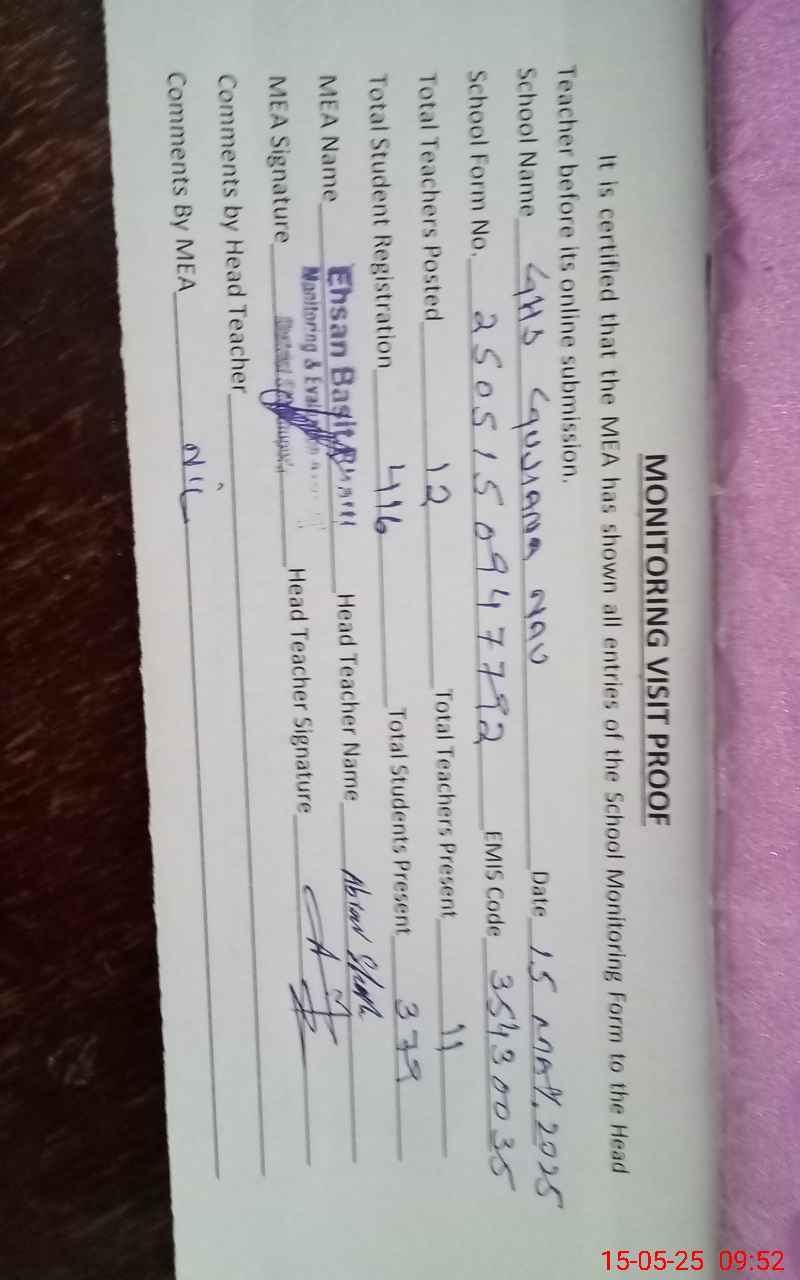 MONITORING VISIT PROOF
It is certified that the MEA has shown all entries of the School Monitoring Form to the Head
Teacher before its online submission.
School Name GHS Gujjiana Nau Date 15 MAY, 2025
School Form No. 2505150947792 EMIS Code 35430035
Total Teachers Posted 12 Total Teachers Present 11
Total Student Registration 416 Total Students Present 379
MEA Name Ehsan Basit Bhatti Head Teacher Name
Monitoring &
MEA Signature Head Teacher Signature
Comments by Head Teacher
Comments By MEA Nil
15-05-25 09:52